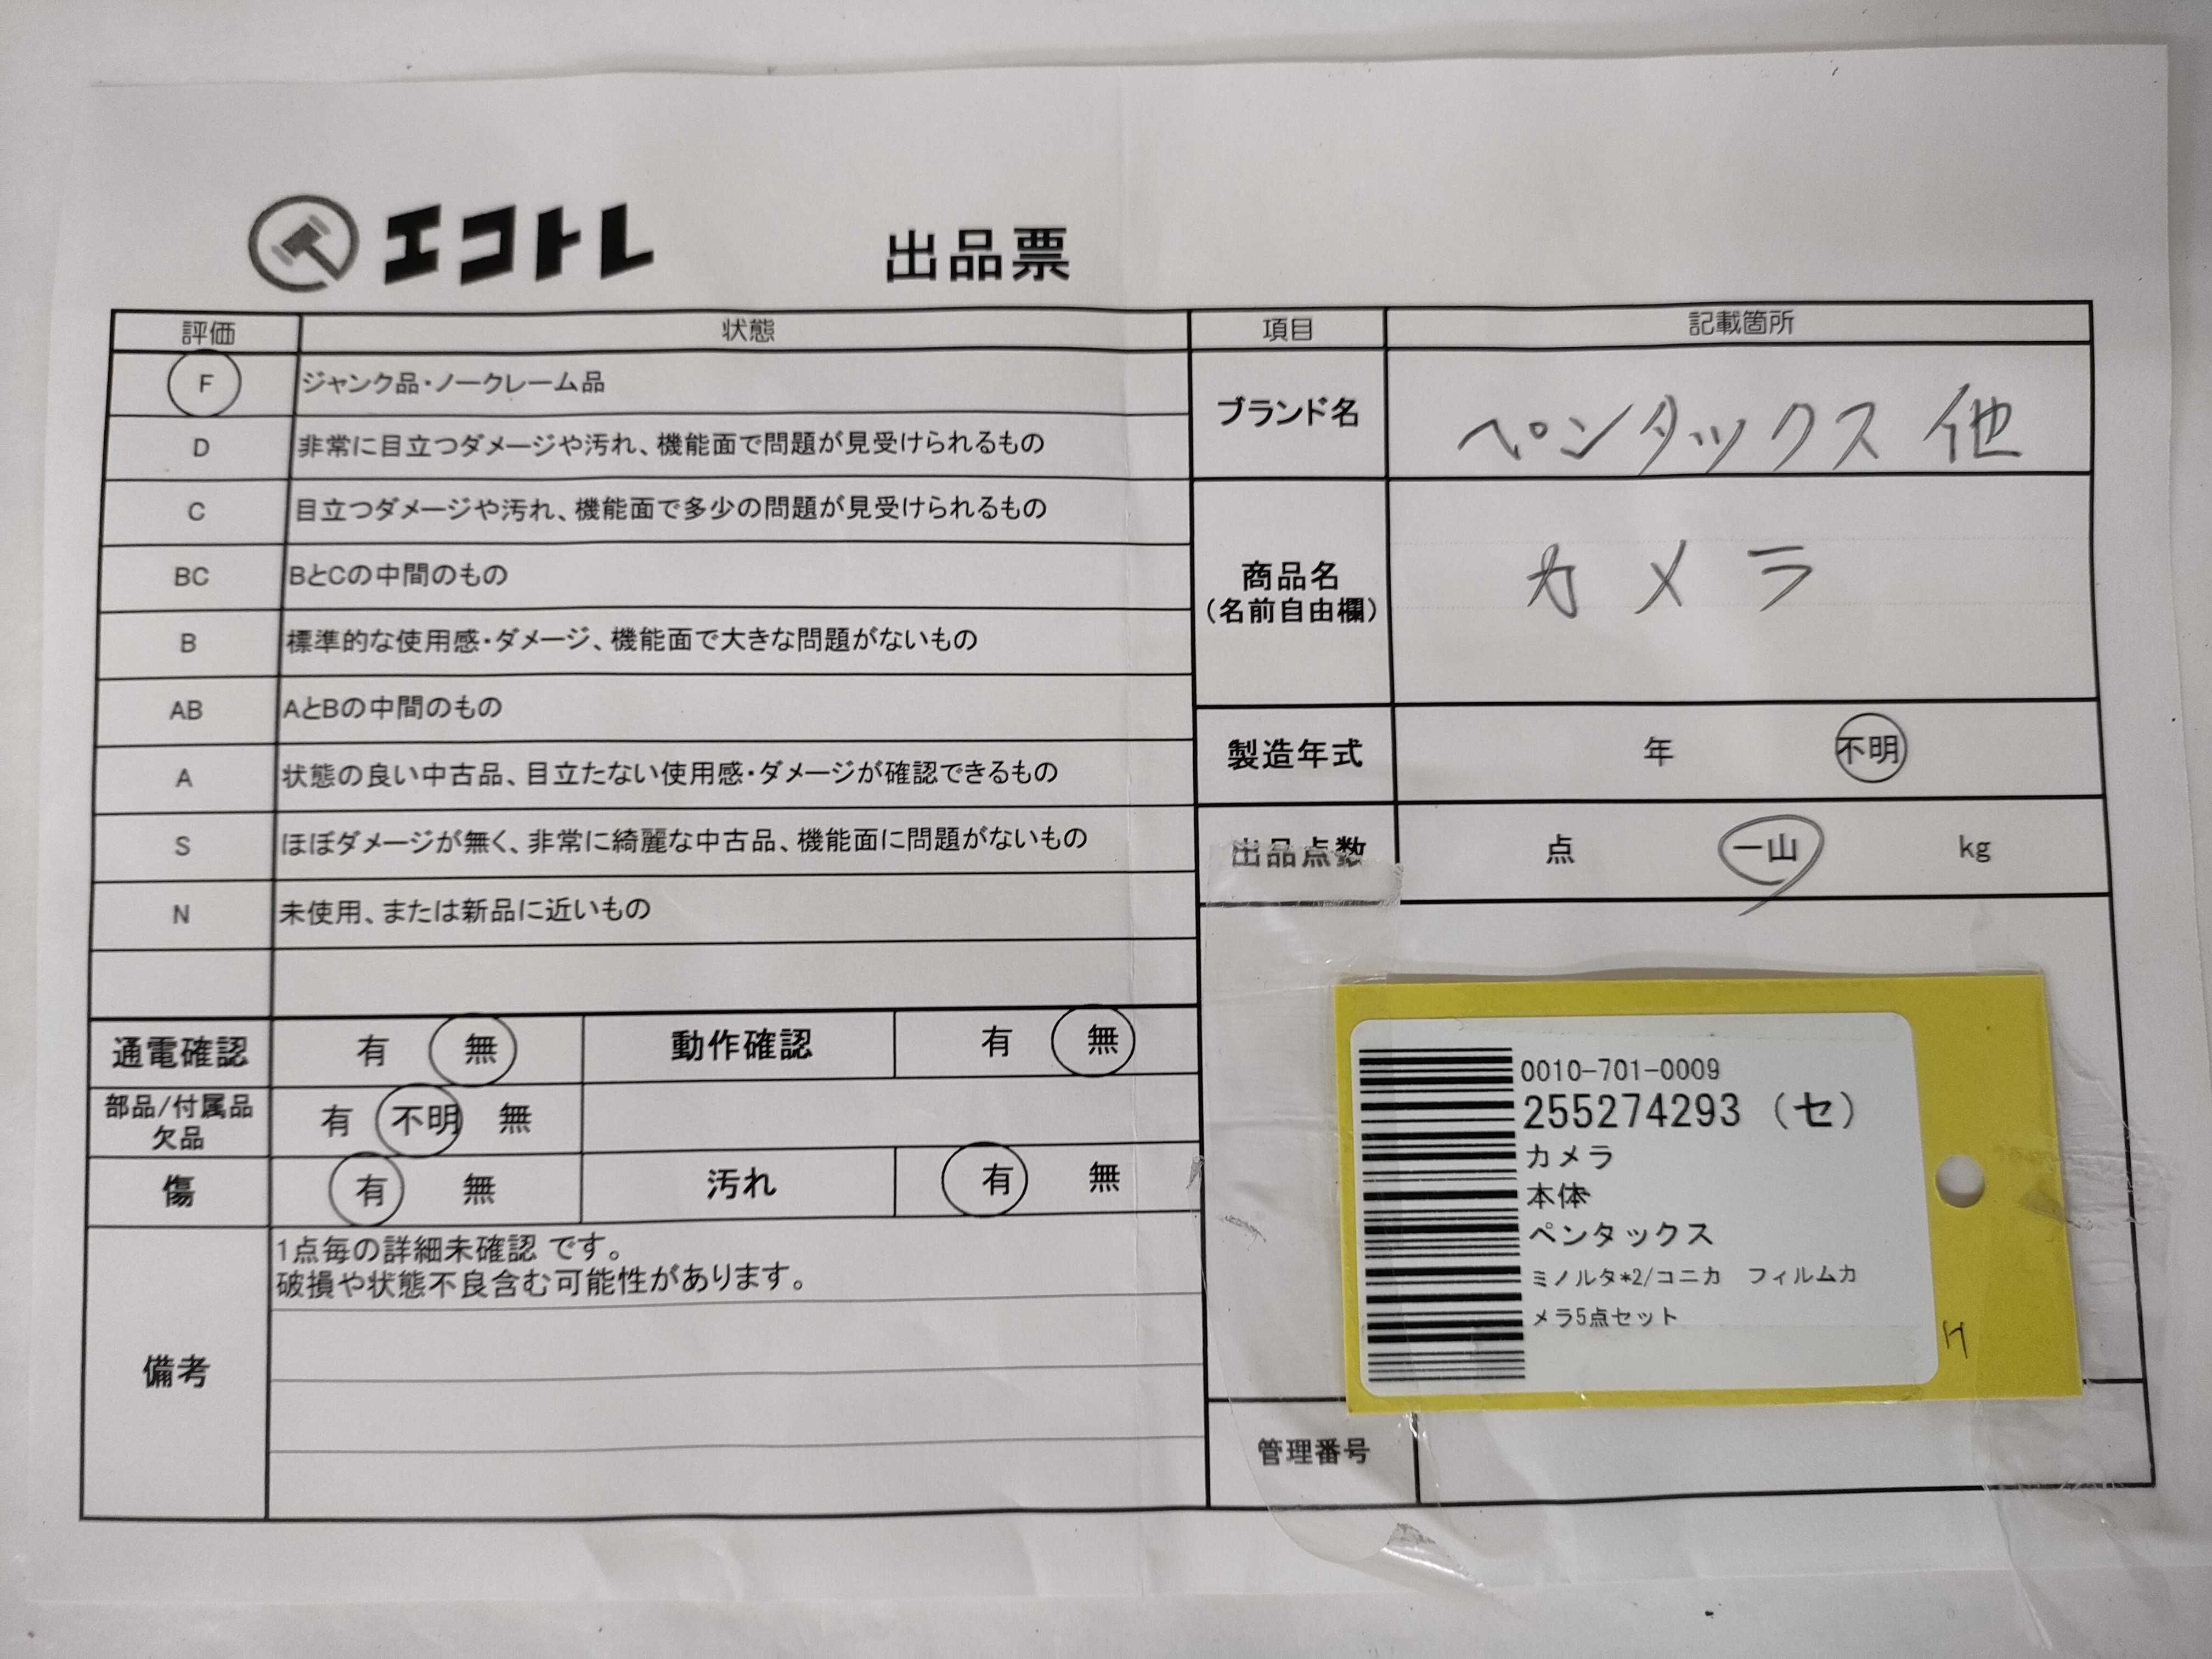 エコトレ 出品票
評価 状態 項目 記載箇所
F ジャンク品・ノークレーム品
D 非常に目立つダメージや汚れ、機能面で問題が見受けられるもの
C 目立つダメージや汚れ、機能面で多少の問題が見受けられるもの
BC BとCの中間のもの
B 標準的な使用感・ダメージ、機能面で大きな問題がないもの
AB AとBの中間のもの
A 状態の良い中古品、目立たない使用感・ダメージが確認できるもの
S ほぼダメージが無く、非常に綺麗な中古品、機能面に問題がないもの
N 未使用、または新品に近いもの
通電確認 有 無 動作確認 有 無
部品/付属品
欠品 有 不明 無
傷 有 無 汚れ 有 無
備考
1点毎の詳細未確認 です。
破損や状態不良含む可能性があります。
ブランド名 ペンタックス 他
商品名
(名前自由欄) カメラ
製造年式 年 不明
出品点数 点 一山 kg
0010-701-0009
255274293 (セ)
カメラ
本体
ペンタックス
ミノルタ*2/コニカ フィルムカ
メラ5点セット
管理番号